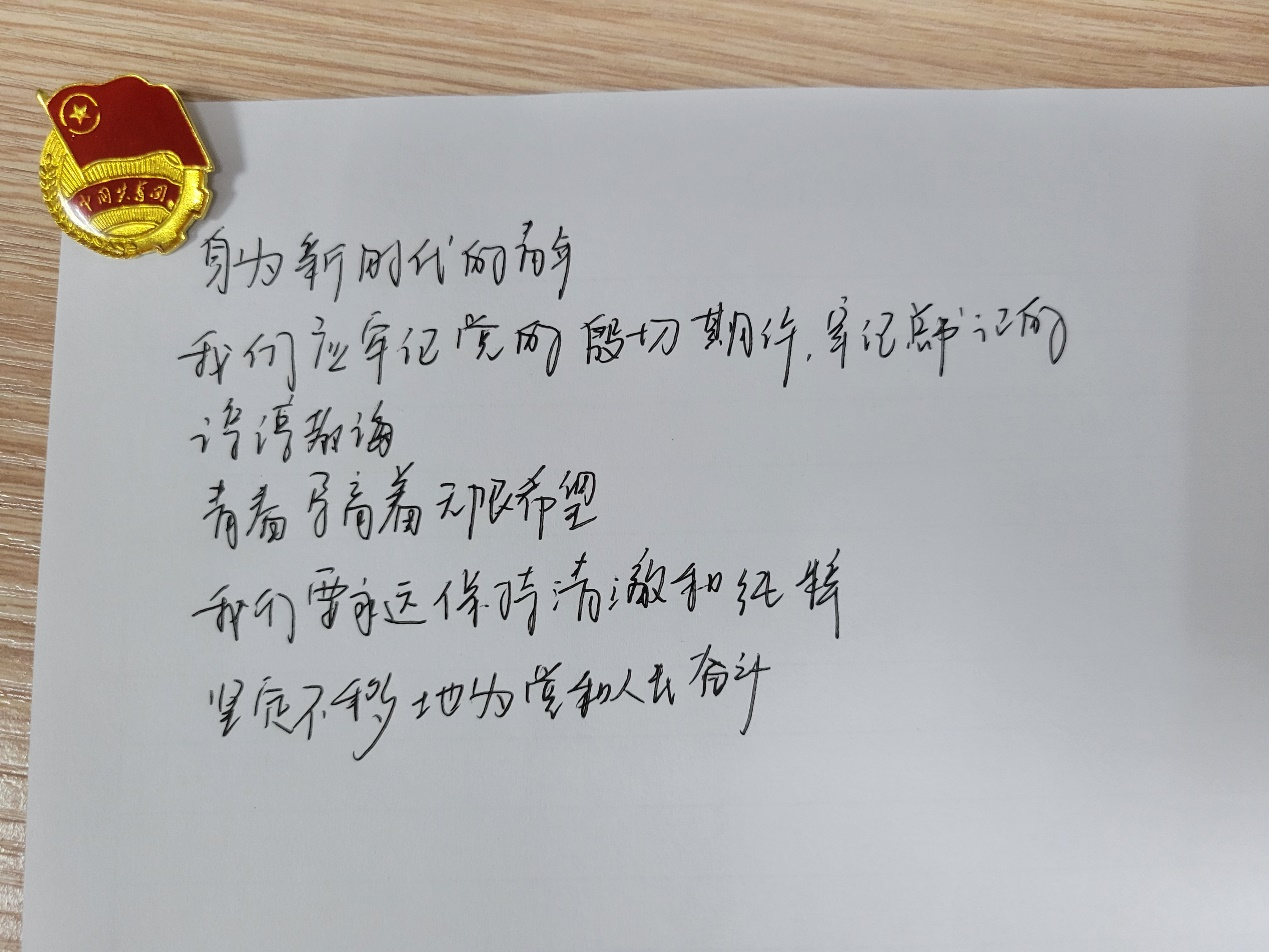 中国共青团
身为新时代的青年
我们应牢记党的殷切期许,牢记总书记的
谆谆教诲
青春孕育着无限希望
我们要永远保持清澈和纯粹
坚定不移地为党和人民奋斗